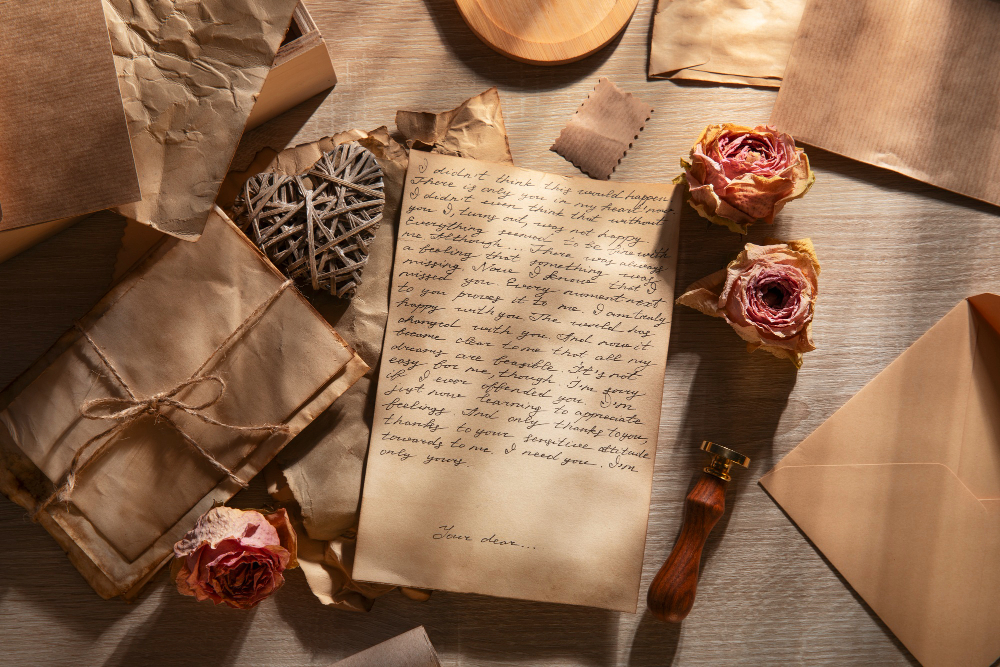 I didn't think this would happen.
There is only you in my heart now
I didn't even think that without
you I, turns out, was not happy.
Everything seemed to be fine with
me. Although... There was always
a feeling that something was
missing. Now I know that I
missed you. Every moment next
to you proves it to me. I am truly
happy with you. The world has
changed with you. And now it
became clear to me that all my
dreams are feasible. It's not
easy for me, though. I'm sorry
if I ever offended you. I'm
just now learning to appreciate
feelings. And only thanks to you,
thanks to your sensitive attitude
towards to me. I need you. I'm
only yours.
Your dear...